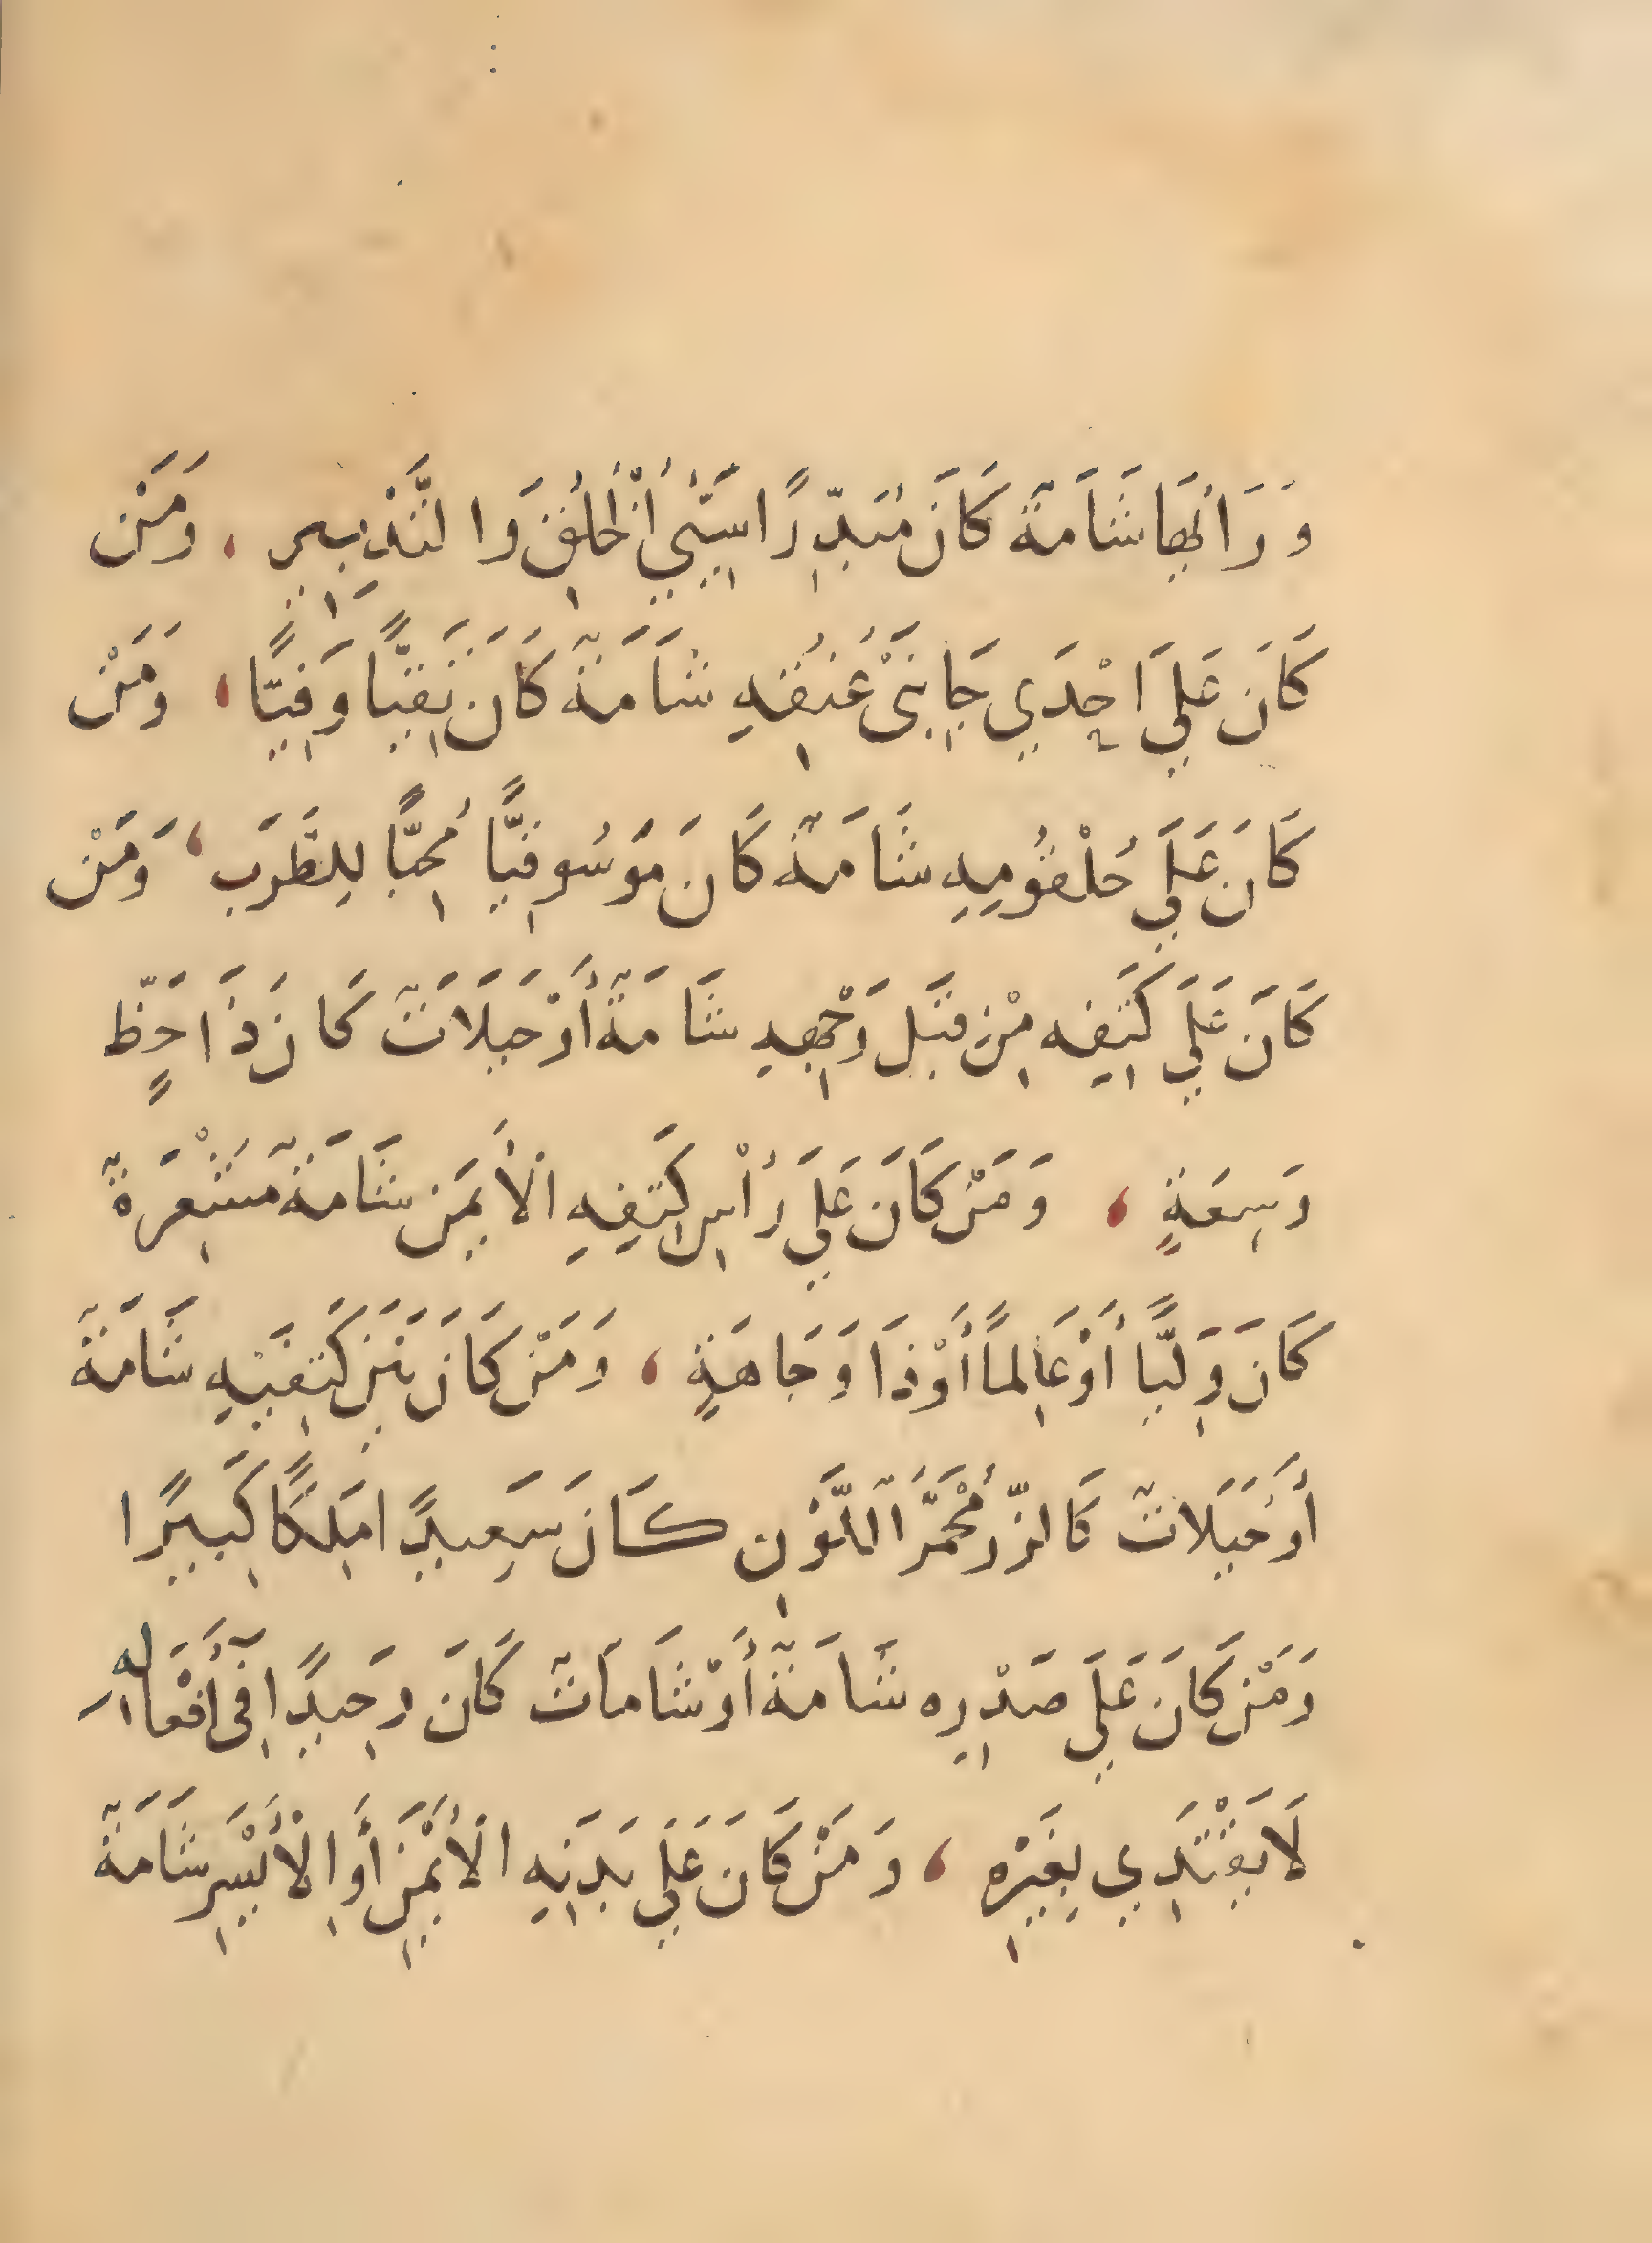 وَرَائِهَا شَامَةٌ كَانَ مُبَذِّرًا سَيِّئَ الْخُلُقِ وَالتَّدْبِيرِ ، وَمَنْ
كَانَ عَلَى اِحْدَي جَانِبَيْ عُنُقِهِ شَامَةٌ كَانَ نَقِيًّا وَفِيًّا ، وَمَنْ
كَانَ عَلَي حُلْقُومِهِ شَامَةٌ كَانَ مُوسُوقِيًّا مُحِبًّا لِلطَّرَبِ ، وَمَنْ
كَانَ عَلَي كَتِفِهِ مِنْ قِبَلِ وَجْهِهِ شَامَةٌ أَوْ خَيَلَاتٌ كَانَ ذَا حَظٍّ
وَسِعَةٍ ، وَمَنْ كَانَ عَلَي رَأْسِ كَتِفِهِ الْأَيْمَنِ شَامَةٌ مُشْعِرَةٌ
كَانَ وَلِيًّا أَوْ عَالِمًا أَوْ ذَا وَجَاهَةٍ ، وَمَنْ كَانَ بَيْنَ كَتِفَيْهِ شَامَةٌ
أَوْ خَيَلَاتٌ كَالزِّرِّ مُحْمَرُّ اللَّوْنِ كَانَ سَعِيدًا مَلِكًا كَبِيرًا
وَمَنْ كَانَ عَلَي صَدْرِهِ شَامَةٌ أَوْ شَامَاتٌ كَانَ وَحِيدًا فِي أَفْعَالِهِ
لَا يَقْتَدِي بِغَيْرِهِ ، وَمَنْ كَانَ عَلَي بَدَنِهِ الْأَيْمَنِ أَوِ الْأَيْسَرِ شَامَةٌ